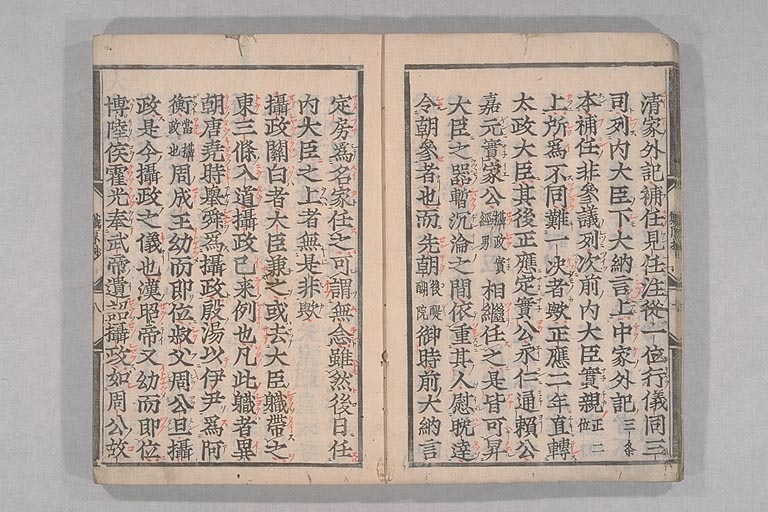 清家外記補任見任注從一位行儀同三
司列内大臣下大納言上中家外記三条
本補任非參議列次前内大臣實親正二位
上所爲不同難一决者歟正應二年直轉
太政大臣其後正應定實公永仁通賴公
嘉元實家公攝政實經男相繼任之是皆可昇
大臣之器暫沉淪之間依重其人慰晩達
令朝參者也而先朝後醍醐院御時前大納言
定房爲名家任之可謂無念雖然後日任
内大臣之上者無是非歟
攝政關白者大臣兼之或去大臣職帶之
東三條入道攝政已来例也凡此職者異
朝唐堯時舉舜爲攝政殷湯以伊尹爲阿
衡當攝政也周成王幼而即位叔父周公旦攝
政是今攝政之儀也漢昭帝又幼而即位
博陸侯霍光奉武帝遺詔攝政如周公故
職原抄 八